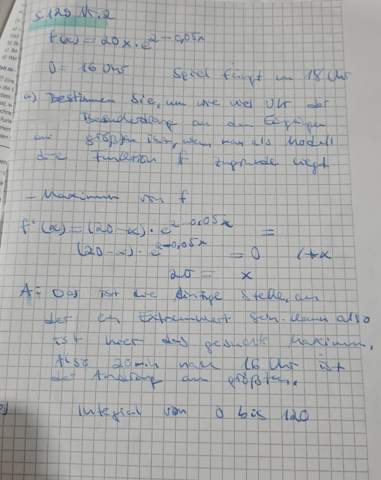 S. 129 Nr. 2
f(x) = 20x · e^2-0,05x
0 = 16 Uhr Spiel fängt um 18 Uhr
a) Bestimmen Sie, um wie viel Uhr der
Besucherandrang an den Eingängen
am größten ist, wenn man als Modell
die Funktion f zugrunde legt
- Maximum von f
f'(x) = (20-x) · e^2-0,05x =
(20-x) · e^2-0,05x = 0 |+x
20 = x
A: Das ist die einzige Stelle, an
der ein Extremwert sein kann also
ist hier das gesuchte Maximum.
Also 20 min nach 16 Uhr ist
der Andrang am größten.
Integral von 0 bis 120